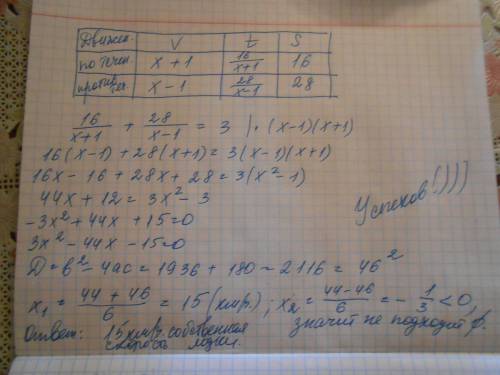 Движен. V t S
по течен. x + 1 16/(x+1) 16
против теч. x - 1 28/(x-1) 28
16/(x+1) + 28/(x-1) = 3 | · (x-1)(x+1)
16(x-1) + 28(x+1) = 3(x-1)(x+1)
16x - 16 + 28x + 28 = 3(x² - 1)
44x + 12 = 3x² - 3
-3x² + 44x + 15 = 0
3x² - 44x - 15 = 0
Успехов!)))
D = b² - 4ac = 1936 + 180 = 2116 = 46²
x₁ = (44 + 46)/6 = 15 (км/ч.) ; x₂ = (44-46)/6 = - 1/3 < 0,
значит не подходит
Ответ: 15 км/ч. собственная
скорость лодки.